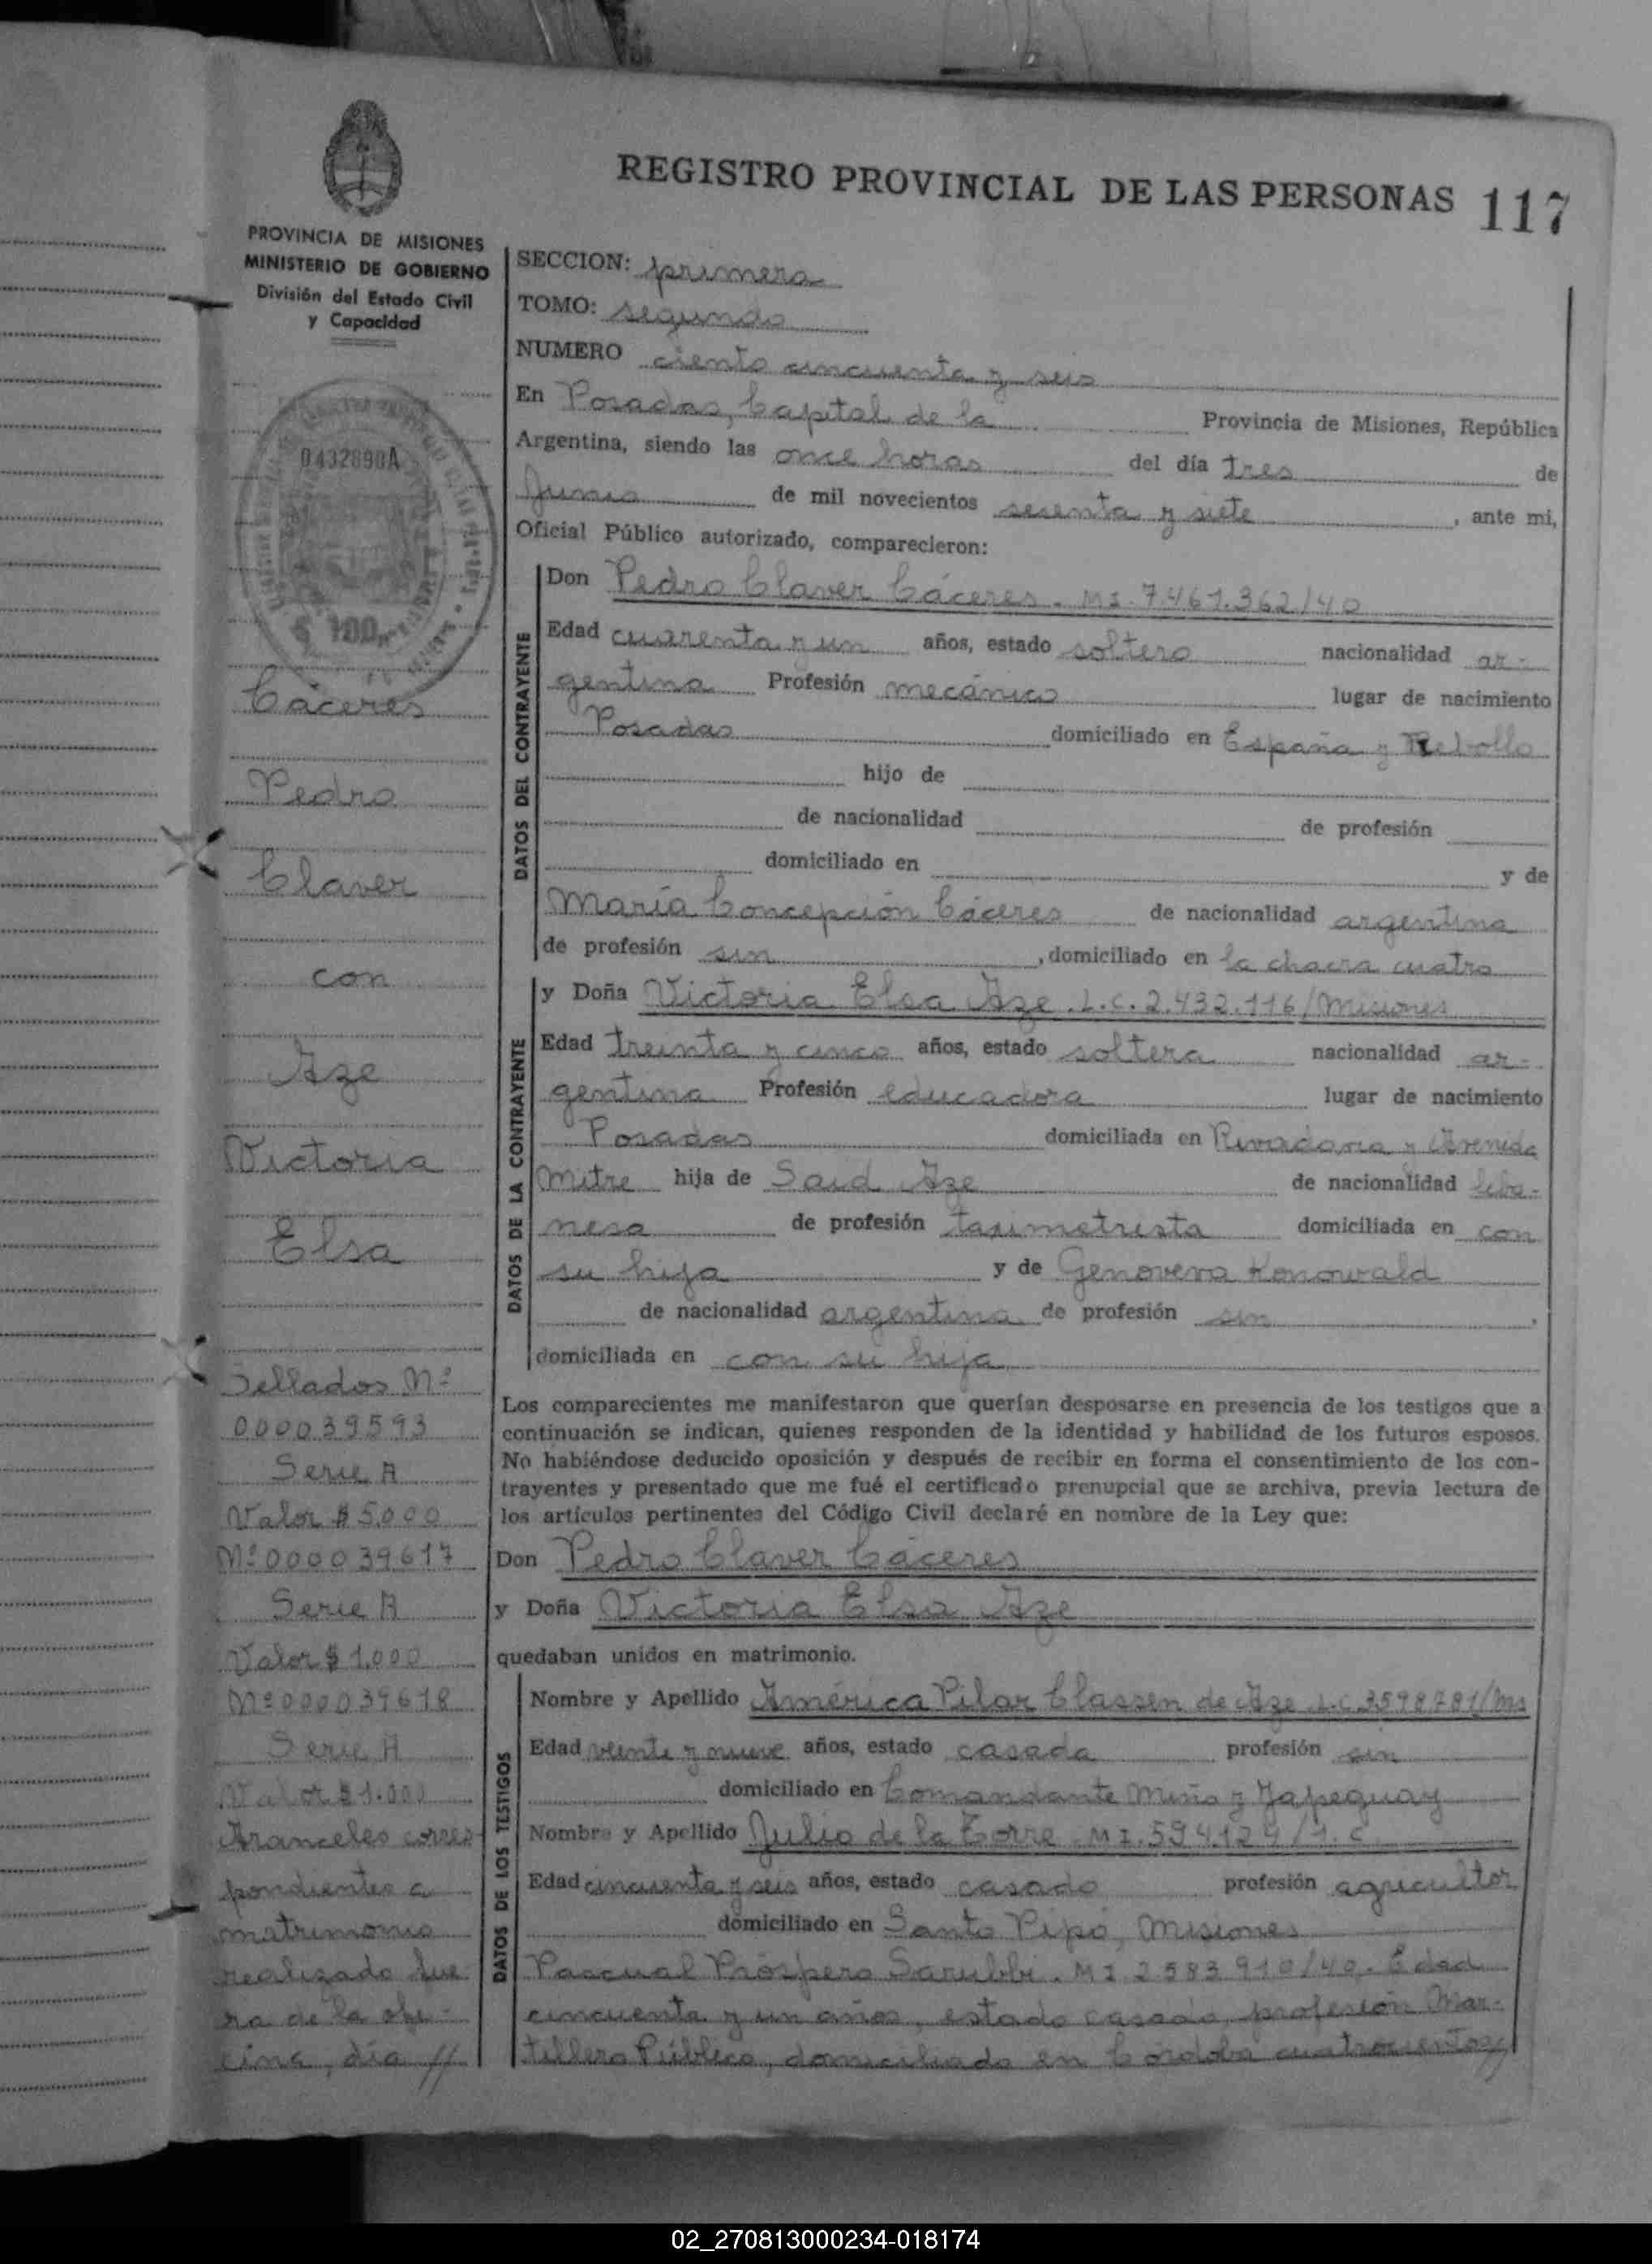 REGISTRO PROVINCIAL DE LAS PERSONAS 117
PROVINCIA DE MISIONES
MINISTERIO DE GOBIERNO
División del Estado Civil
y Capacidad
0432890A
$ 100
Cáceres
Pedro
Claver
con
Aze
Victoria
Elsa
Sellados Nº
000039593
Serie A
Valor $ 5.000
Nº 000039617
Serie A
Valor $ 1.000
Nº 000039618
Serie A
Valor $ 1.000
Aranceles corres-
pondientes a
matrimonio
realizado fue-
ra de la ofi-
cina, día //
SECCION: primera
TOMO: segundo
NUMERO ciento cincuenta y seis
En Posadas, Capital de la Provincia de Misiones, República
Argentina, siendo las once horas del día tres de
Junio de mil novecientos sesenta y siete, ante mi,
Oficial Público autorizado, comparecieron:
DATOS DEL CONTRAYENTE
Don Pedro Claver Cáceres. MI. 7.461.362/40
Edad cuarenta y un años, estado soltero nacionalidad ar-
gentina Profesión mecánico lugar de nacimiento
Posadas domiciliado en España y Rebollo
hijo de
de nacionalidad de profesión
domiciliado en y de
María Concepción Cáceres de nacionalidad argentina
de profesión sin, domiciliado en la chacra cuatro
DATOS DE LA CONTRAYENTE
y Doña Victoria Elsa Aze. L.C. 2.432.116/Misiones
Edad treinta y cinco años, estado soltera nacionalidad ar-
gentina Profesión educadora lugar de nacimiento
Posadas domiciliada en Rivadavia y Avenida
Mitre hija de Said Aze de nacionalidad liba-
nesa de profesión taximetrista domiciliada en con
su hija y de Genoveva Konowald
de nacionalidad argentina de profesión sin,
domiciliada en con su hija
Los comparecientes me manifestaron que querían desposarse en presencia de los testigos que a
continuación se indican, quienes responden de la identidad y habilidad de los futuros esposos.
No habiéndose deducido oposición y después de recibir en forma el consentimiento de los con-
trayentes y presentado que me fué el certificado prenupcial que se archiva, previa lectura de
los artículos pertinentes del Código Civil declaré en nombre de la Ley que:
Don Pedro Claver Cáceres
y Doña Victoria Elsa Aze
quedaban unidos en matrimonio.
DATOS DE LOS TESTIGOS
Nombre y Apellido América Pilar Classen de Aze L.C. 3598781/Ms
Edad veinte y nueve años, estado casada profesión sin
domiciliado en Comandante Miño y Yapeguay
Nombre y Apellido Julio de la Torre. MI. 594.124/1.C
Edad cincuenta y seis años, estado casado profesión agricultor
domiciliado en Santo Pipó, Misiones
Pascual Próspero Sarubbi. MI 2.583.910/40. Edad
cincuenta y un años, estado casado, profesión Mar-
tillero Público, domiciliado en Córdoba cuatrocientos//
02_270813000234-018174